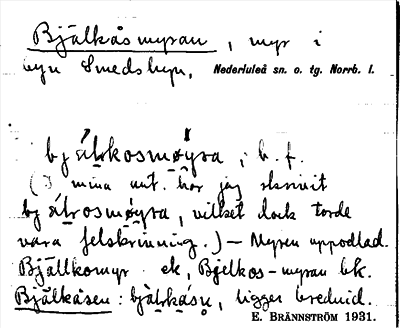 Bjälkåsmyran, myr i
byn Smedsbyn, Nederluleå sn. o. tg. Norrb. l.
bjälrkosmøyra, b. f.
(I mina ant. har jag skrivit
bjälrosmøyra, vilket dock torde
vara felskrivning.) — Myren uppodlad.
Bjällkomyr ek, Bjelkos-myran bk.
Bjälkåsen: bjälrkåsn, ligger bredvid.
E. BRÄNNSTRÖM 1931.